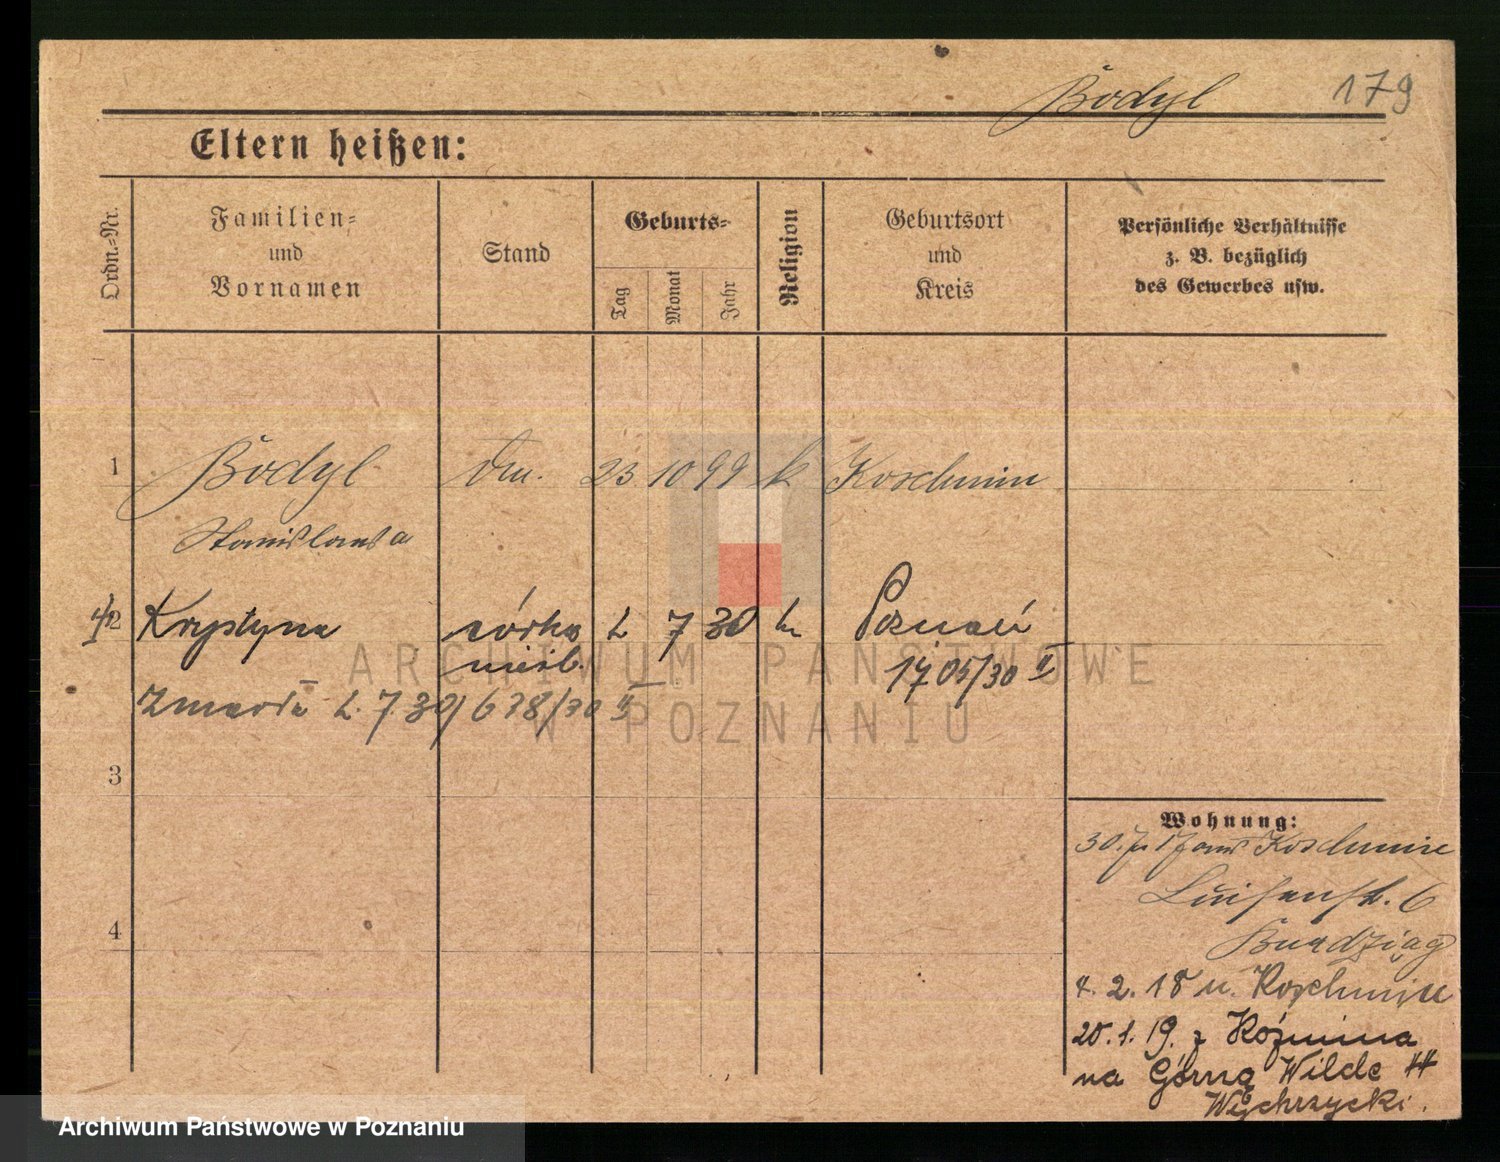 Bodyl 179
Eltern heißen:
Ordn.=Nr.
Familien=
und
Vornamen
Stand
Geburts=
Tag
Monat
Jahr
Religion
Geburtsort
und
Kreis
Persönliche Verhältnisse
z. B. bezüglich
des Gewerbes usw.
1 Bodyl 23 10 99 k Koschmin
Stanislawa
2 Krystyna córka 7 30 Poznań
nieśl. 1705/30 II
Zmarła 7 30/638/30 II
3
4
Wohnung:
30. 7. 17 aus Koschmin
Luisenstr. 6
4. 2. 18 n. Koschmin
20. 1. 19. z Koźmina
na Górną Wildę
ARCHIWUM PAŃSTWOWE
W POZNANIU
Archiwum Państwowe w Poznaniu